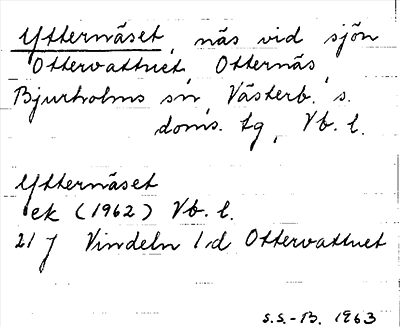 Ytternäset, näs vid sjön
Ottervattnet, Otternäs,
Bjurholms sn, Västerb. s.
doms. tg, Vb. l.
Ytternäset
ek (1962) Vb. l.
21 J Vindeln 1d Ottervattnet
S.S.-B. 1963